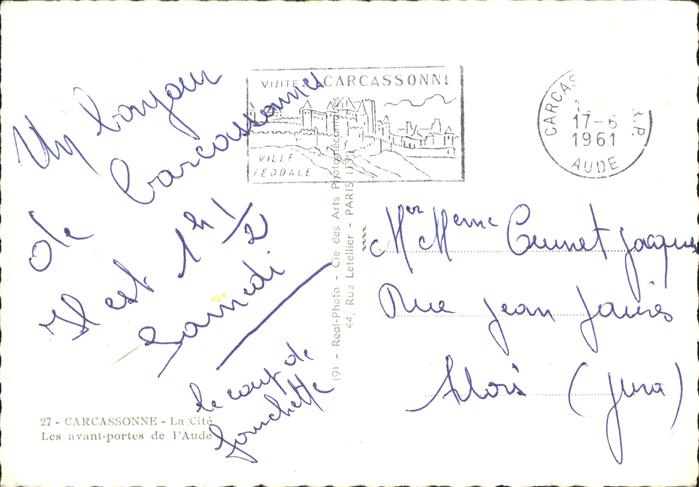 Un bonjour
de Carcassonne
Il est 1h 1/2
Samedi
le coup de
fourchette
27 - CARCASSONNE - La Cité
Les avant-portes de l'Aude
VISITEZ CARCASSONNE
VILLE
FÉODALE
(9) - Real-Photo - Cie des Arts Photomécaniques
44, Rue Letellier - PARIS
CARCAS R.P.
17-6
1961
AUDE
Mr Meme Cunet Jacques
Rue Jean Jaurès
(Jura)